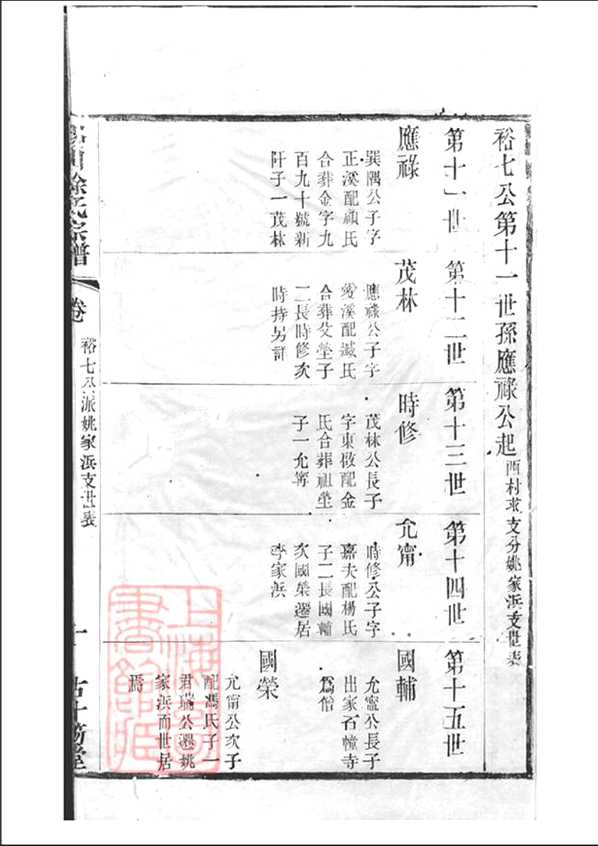 裕七公第十一世孫應祿公起
西村求支分姚家浜支世表
第十一世
第十二世
第十三世
第十四世
第十五世
應祿
巽隅公子字
正溪配顧氏
合葬金字九
百九十號新
阡子一茂林
茂林
應祿公子字
溪配臧氏
合葬父塋子
二長時修次
時持另訂
時修
茂林公長子
字東啟配金
氏合葬祖塋
子一允甯
允甯
時修公子字
嘉夫配楊氏
子二長國輔
次國榮遷居
李家浜
國輔
允甯公長子
出家石幢寺
爲僧
國榮
允甯公次子
配馮氏子一
君瑞公遷姚
家浜而世居
焉
徐氏宗譜
卷
裕七公派姚家浜支世表
十
上海圖書館藏